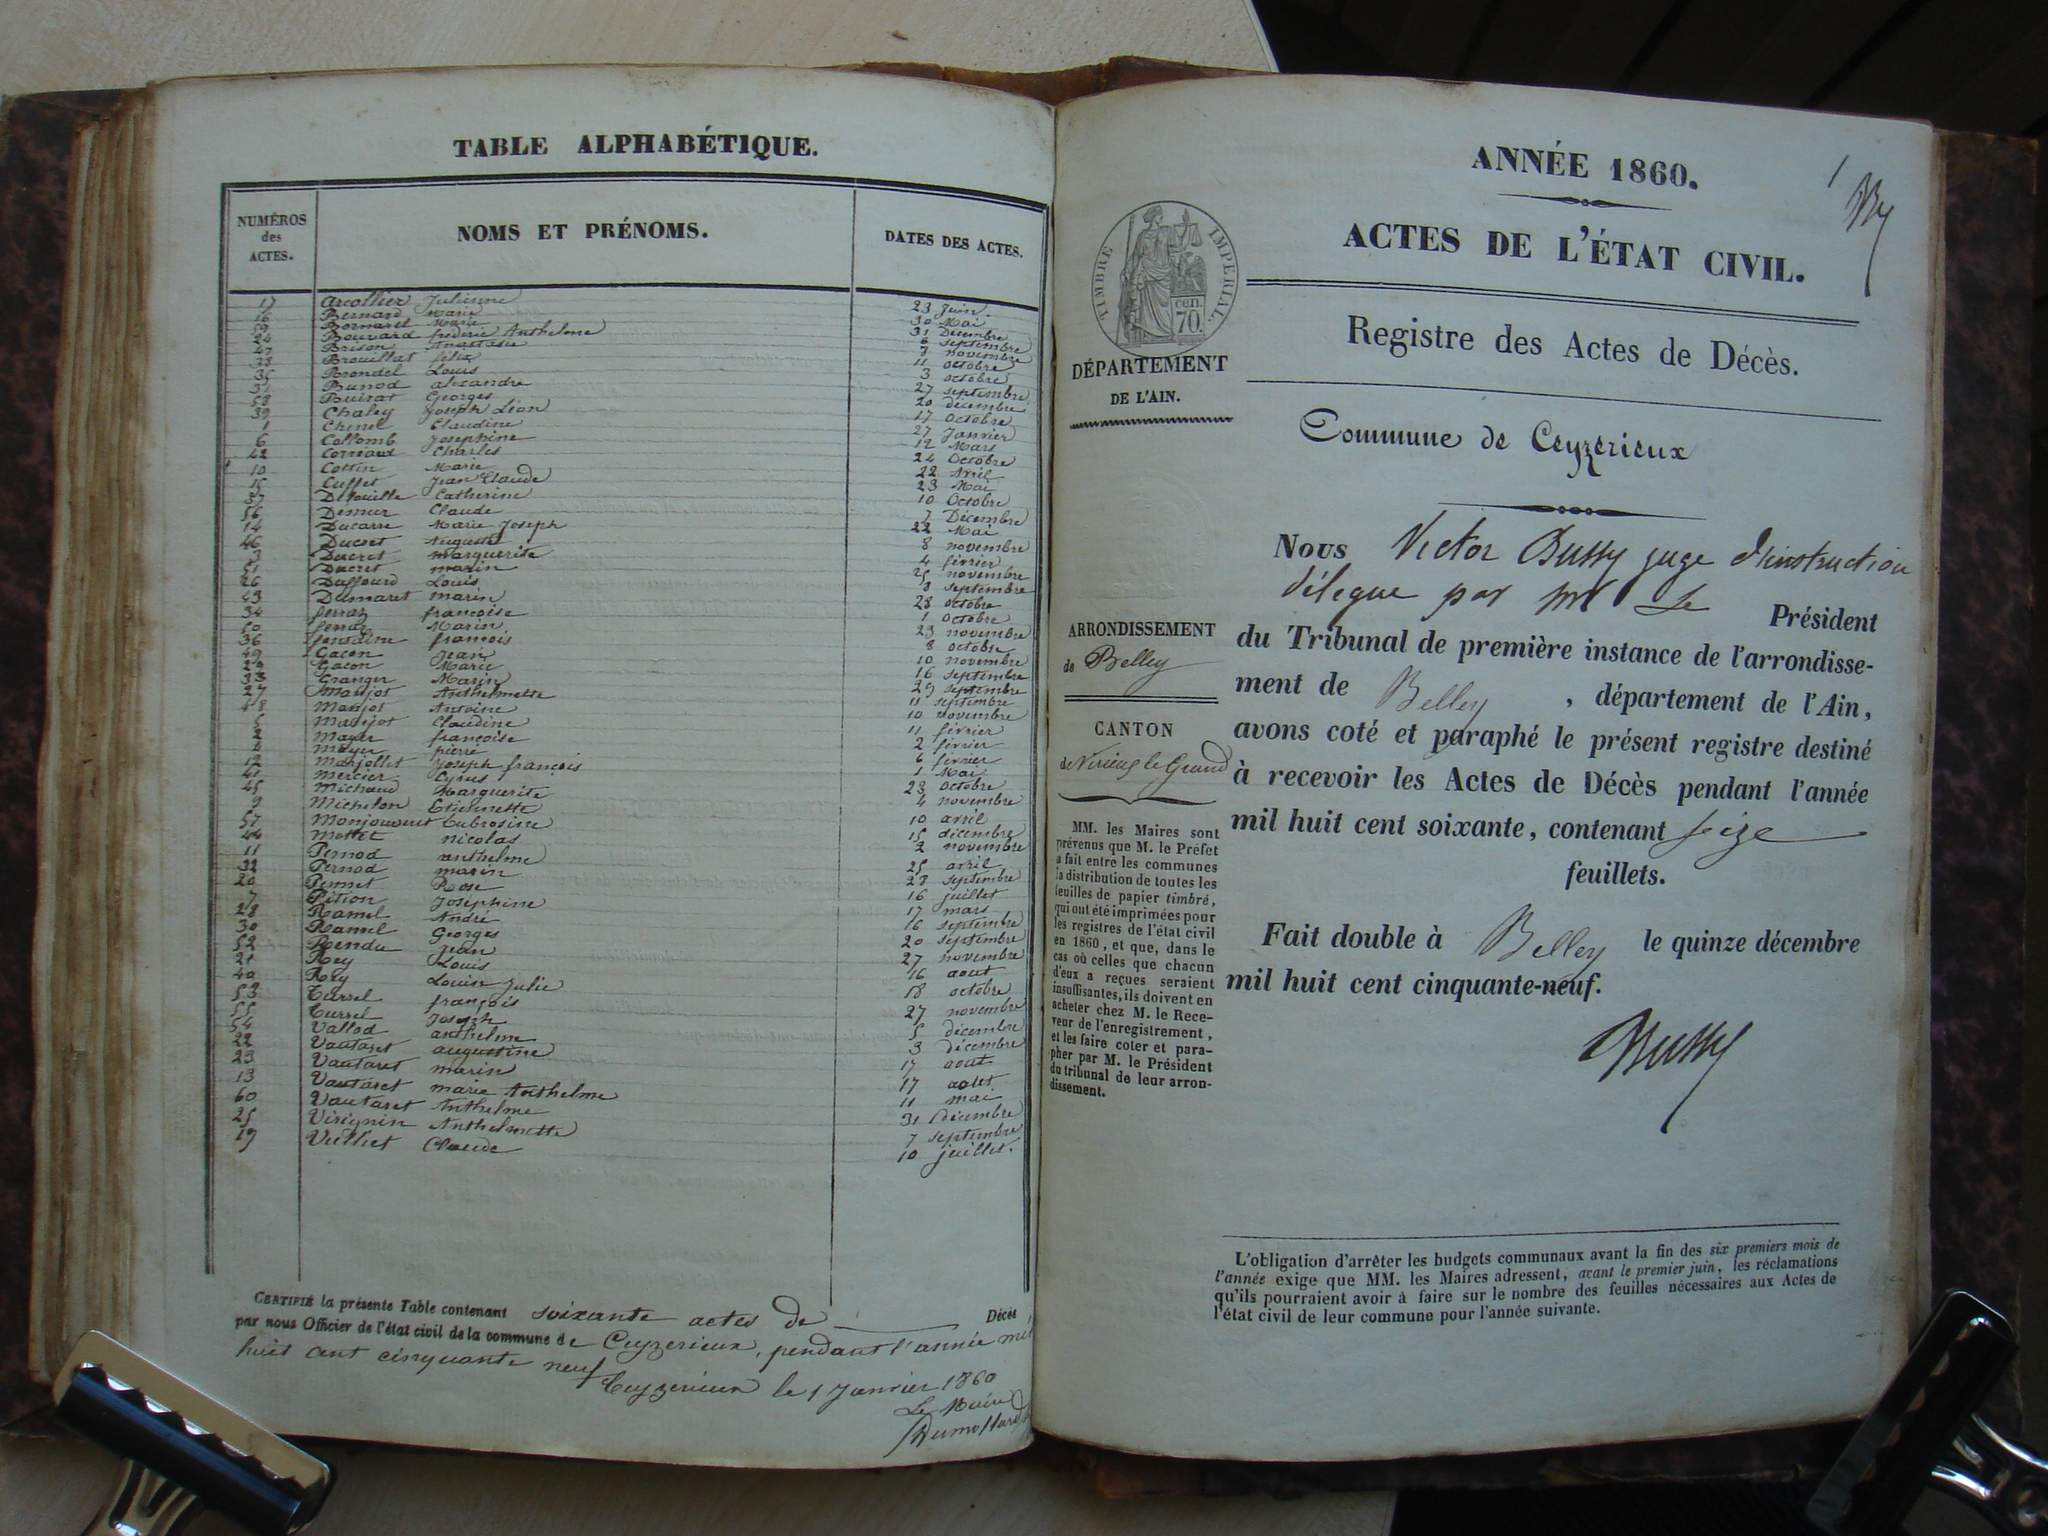 TABLE ALPHABÉTIQUE.
NUMÉROS
des
ACTES.
NOMS ET PRÉNOMS.
DATES DES ACTES.
17 Arcollier Julienne 23 Juin
16 Bernard Marie 30 Mai
59 Bornarel Marie 31 Décembre
24 Bouvard frédéric Anthelme 6 septembre
47 Brison Anastasie 9 novembre
Brouillat félix 11 octobre
35 Brondel Louis 3 octobre
31 Bunod alexandre 27 septembre
58 Buirat Georges 20 décembre
39 Chaley Joseph Léon 17 Octobre
1 Chenel Claudine 27 Janvier
6 Collomb Josephine 12 Mars
42 Cornaux Charles 24 Octobre
10 Cottin Marie 22 Avril
15 Cuffet Jean Claude 23 Mai
37 Catherine 10 Octobre
56 Demur Claude 7 Décembre
14 Ducarre Marie Joseph 22 Mai
46 Ducret Auguste 8 novembre
3 Ducret marguerite 4 février
51 Ducret marin 25 novembre
26 Duffourd Louis 8 septembre
43 Dumaret marin 28 octobre
34 ferraz françoise 1 octobre
50 ferraz Marin 23 novembre
36 fontaine françois 8 octobre
49 Gacon Jean 10 novembre
29 Gacon Marie 16 septembre
33 Granger Marin 29 septembre
27 Manjot Anthelmette 11 septembre
48 Manjot Antoine 10 novembre
5 Manjot Claudine 11 février
2 Mayer françoise 2 février
4 Mayer pierre 6 février
12 Marjollet Joseph françois 1 Mai
41 Mercier Cyrus 23 octobre
45 Michaud Marguerite 4 novembre
9 Michelon Etiennette 10 avril
57 Eubrosine 15 décembre
44 Mottet nicolas 2 novembre
11 Pernod anthelme 25 avril
32 Pernod marin 28 septembre
20 Pernet Rose 16 juillet
7 Pition Joséphine 17 mars
28 Ramel André 16 septembre
30 Ramel Georges 20 septembre
52 Rendu Jean 27 novembre
21 Rey Louis 16 aout
40 Rey Louise Julie 18 octobre
53 Turrel françois 27 novembre
55 Turrel Joseph 5 décembre
54 Vallod anthelme 3 décembre
22 Vautaret augustine 17 aout
23 Vautaret marin 17 aout
13 Vautaret marie Anthelme 11 mai
60 Vautaret Anthelme 31 Décembre
25 Virignin Anthelmette 7 septembre
19 Vulliet Claude 10 juillet.
CERTIFIÉ la présente Table contenant soixante actes de Décès
par nous Officier de l'état civil de la commune de Ceyzerieux, pendant l'année mil
huit cent cinquante neuf
Ceyzerieux le 1 Janvier 1860
Le Maire
Dumollard
ANNÉE 1860.
1
ACTES DE L'ÉTAT CIVIL.
TIMBRE IMPÉRIAL.
cen.
70.
DÉPARTEMENT
DE L'AIN.
Registre des Actes de Décès.
Commune de Ceyzerieux
Nous Victor Bussy juge d'instruction
délegue par Mr Le Président
du Tribunal de première instance de l'arrondisse-
ment de Belley, département de l'Ain,
avons coté et paraphé le présent registre destiné
à recevoir les Actes de Décès pendant l'année
mil huit cent soixante, contenant seize
feuillets.
Fait double à Belley le quinze décembre
mil huit cent cinquante-neuf.
Bussy
ARRONDISSEMENT
de Belley
CANTON
de Virieu le Grand
MM. les Maires sont
prévenus que M. le Préfet
a fait entre les communes
la distribution de toutes les
feuilles de papier timbré,
qui ont été imprimées pour
les registres de l'état civil
en 1860, et que, dans le
cas où celles que chacun
d'eux a reçues seraient
insuffisantes, ils doivent en
acheter chez M. le Rece-
veur de l'enregistrement,
et les faire coter et para-
pher par M. le Président
du tribunal de leur arron-
dissement.
L'obligation d'arrêter les budgets communaux avant la fin des six premiers mois de
l'année exige que MM. les Maires adressent, avant le premier juin, les réclamations
qu'ils pourraient avoir à faire sur le nombre des feuilles nécessaires aux Actes de
l'état civil de leur commune pour l'année suivante.